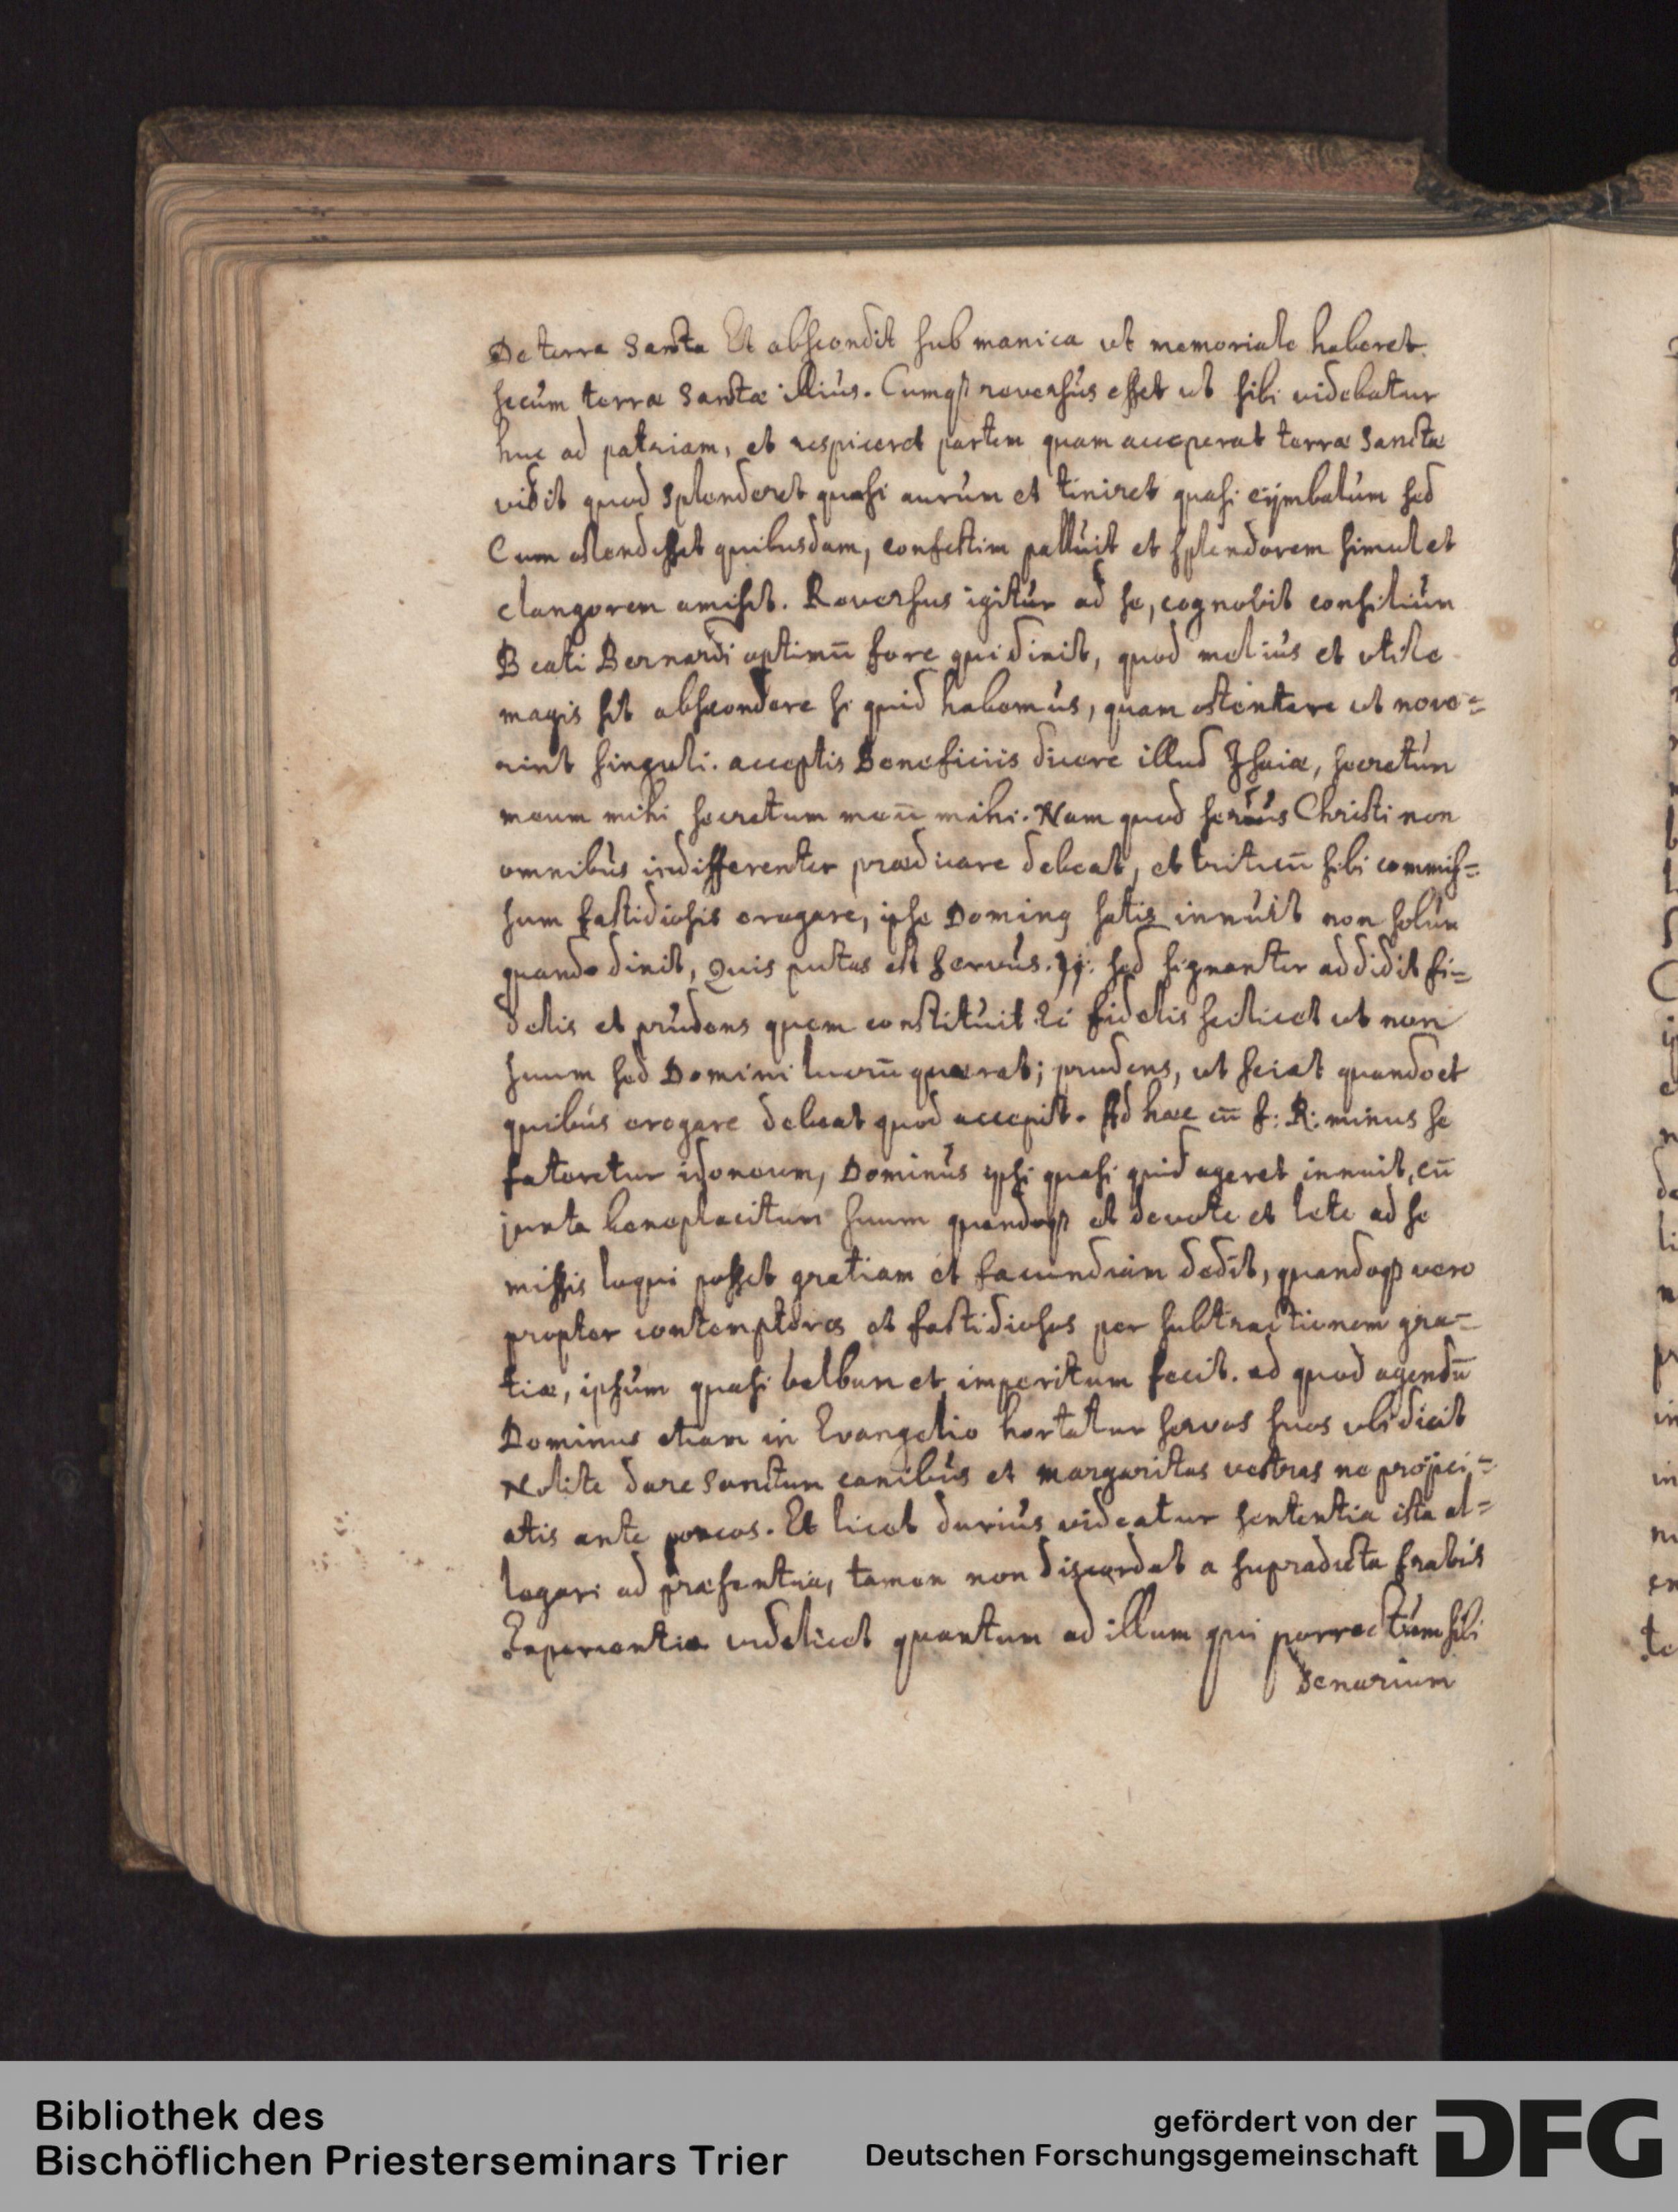 De terra Sancta Et abscondit sub manica ut memoriale haberet
secum terræ Sanctæ illius. Cumq₃ reversus esset ut sibi videbatur
huc ad patriam, et respiceret partem quam acceperat terræ Sanctæ
vidit quod splenderet quasi aurum et tiniret quasi cÿmbalum sed
Cum ostendisset quibusdam, confestim palluit et splendorem simul et
clangorem amisit. Reversus igitur ad se, cognovit consilium
Beati Bernardi optimū fore qui dixit, quod melius et utile
magis sit abscondere si quid habemus, quam ostentare ut nove=
rint singuli. acceptis Beneficiis dicere illud Jsaiæ, secretum
meum mihi secretum meū mihi. Nam quod servus Christi non
omnibus indifferenter prædicare debeat, et triticū sibi commis=
sum fastidiosis erogare, ipse Dominꝯ satis innuit non solum
quando dixit, Quis putas est servus. sed signanter addidit fi=
delis et prudens quem constituit &c fidelis scilicet ut non
suum sed Domini lucrū quærat; prudens, ut sciat quando et
quibus erogare debeat quod accepit. Ad hæc cū f: R: minus se
fateretur idoneum, Dominus ipsi quasi quid ageret innuit, cū
juxta beneplacitum suum quandoq₃ et devote et lete ad se
missis loqui posset gratiam et facundiam dedit, quandoq₃ vero
propter contemptores et fastidiosos per subtractionem gra=
tiæ, ipsum quasi balbum et imperitum fecit. ad quod agendū
Dominus etiam in Evangelio hortatur servos suos ubi dicit
Nolite dare Sanctum canibus et margaritas vestras ne projici=
atis ante porcos. Et licet durius videatur sententia ista al=
legari ad præsentia, tamen non discordat a supradicta fratris
Experientia videlicet quantum ad illum qui porrectum sibi
denarium
Bibliothek des
Bischöflichen Priesterseminars Trier
gefördert von der
Deutschen Forschungsgemeinschaft
DFG